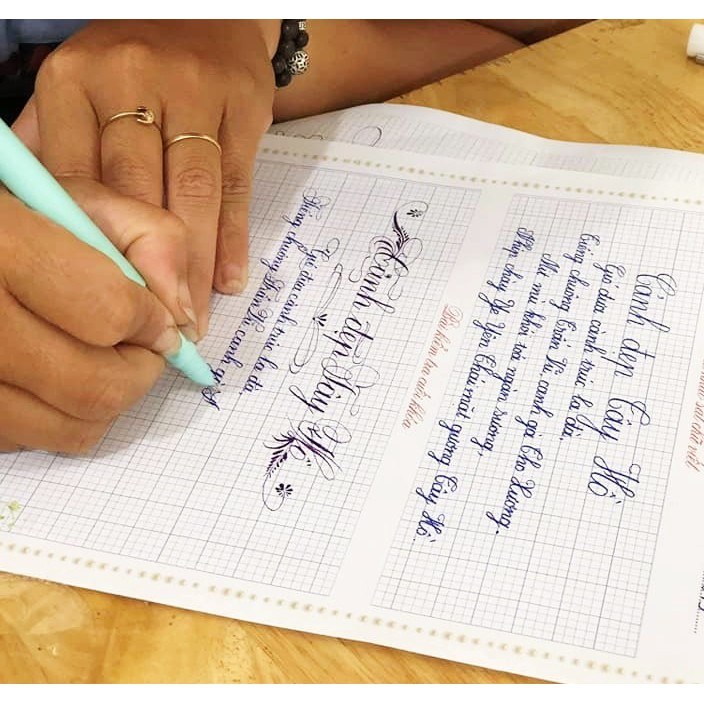 bài đã viết
Cảnh đẹp Tây Hồ
Gió đưa cành trúc la đà,
Tiếng chuông Trấn Vũ canh gà Thọ Xương.
Mịt mù khói tỏa ngàn sương,
Nhịp chày Ye Yên Thái mặt gương Tây Hồ
Bài kiểm tra cuối khóa
Cảnh đẹp Tây Hồ
Gió đưa cành trúc la đà,
Tiếng chuông Trấn Vũ canh gà